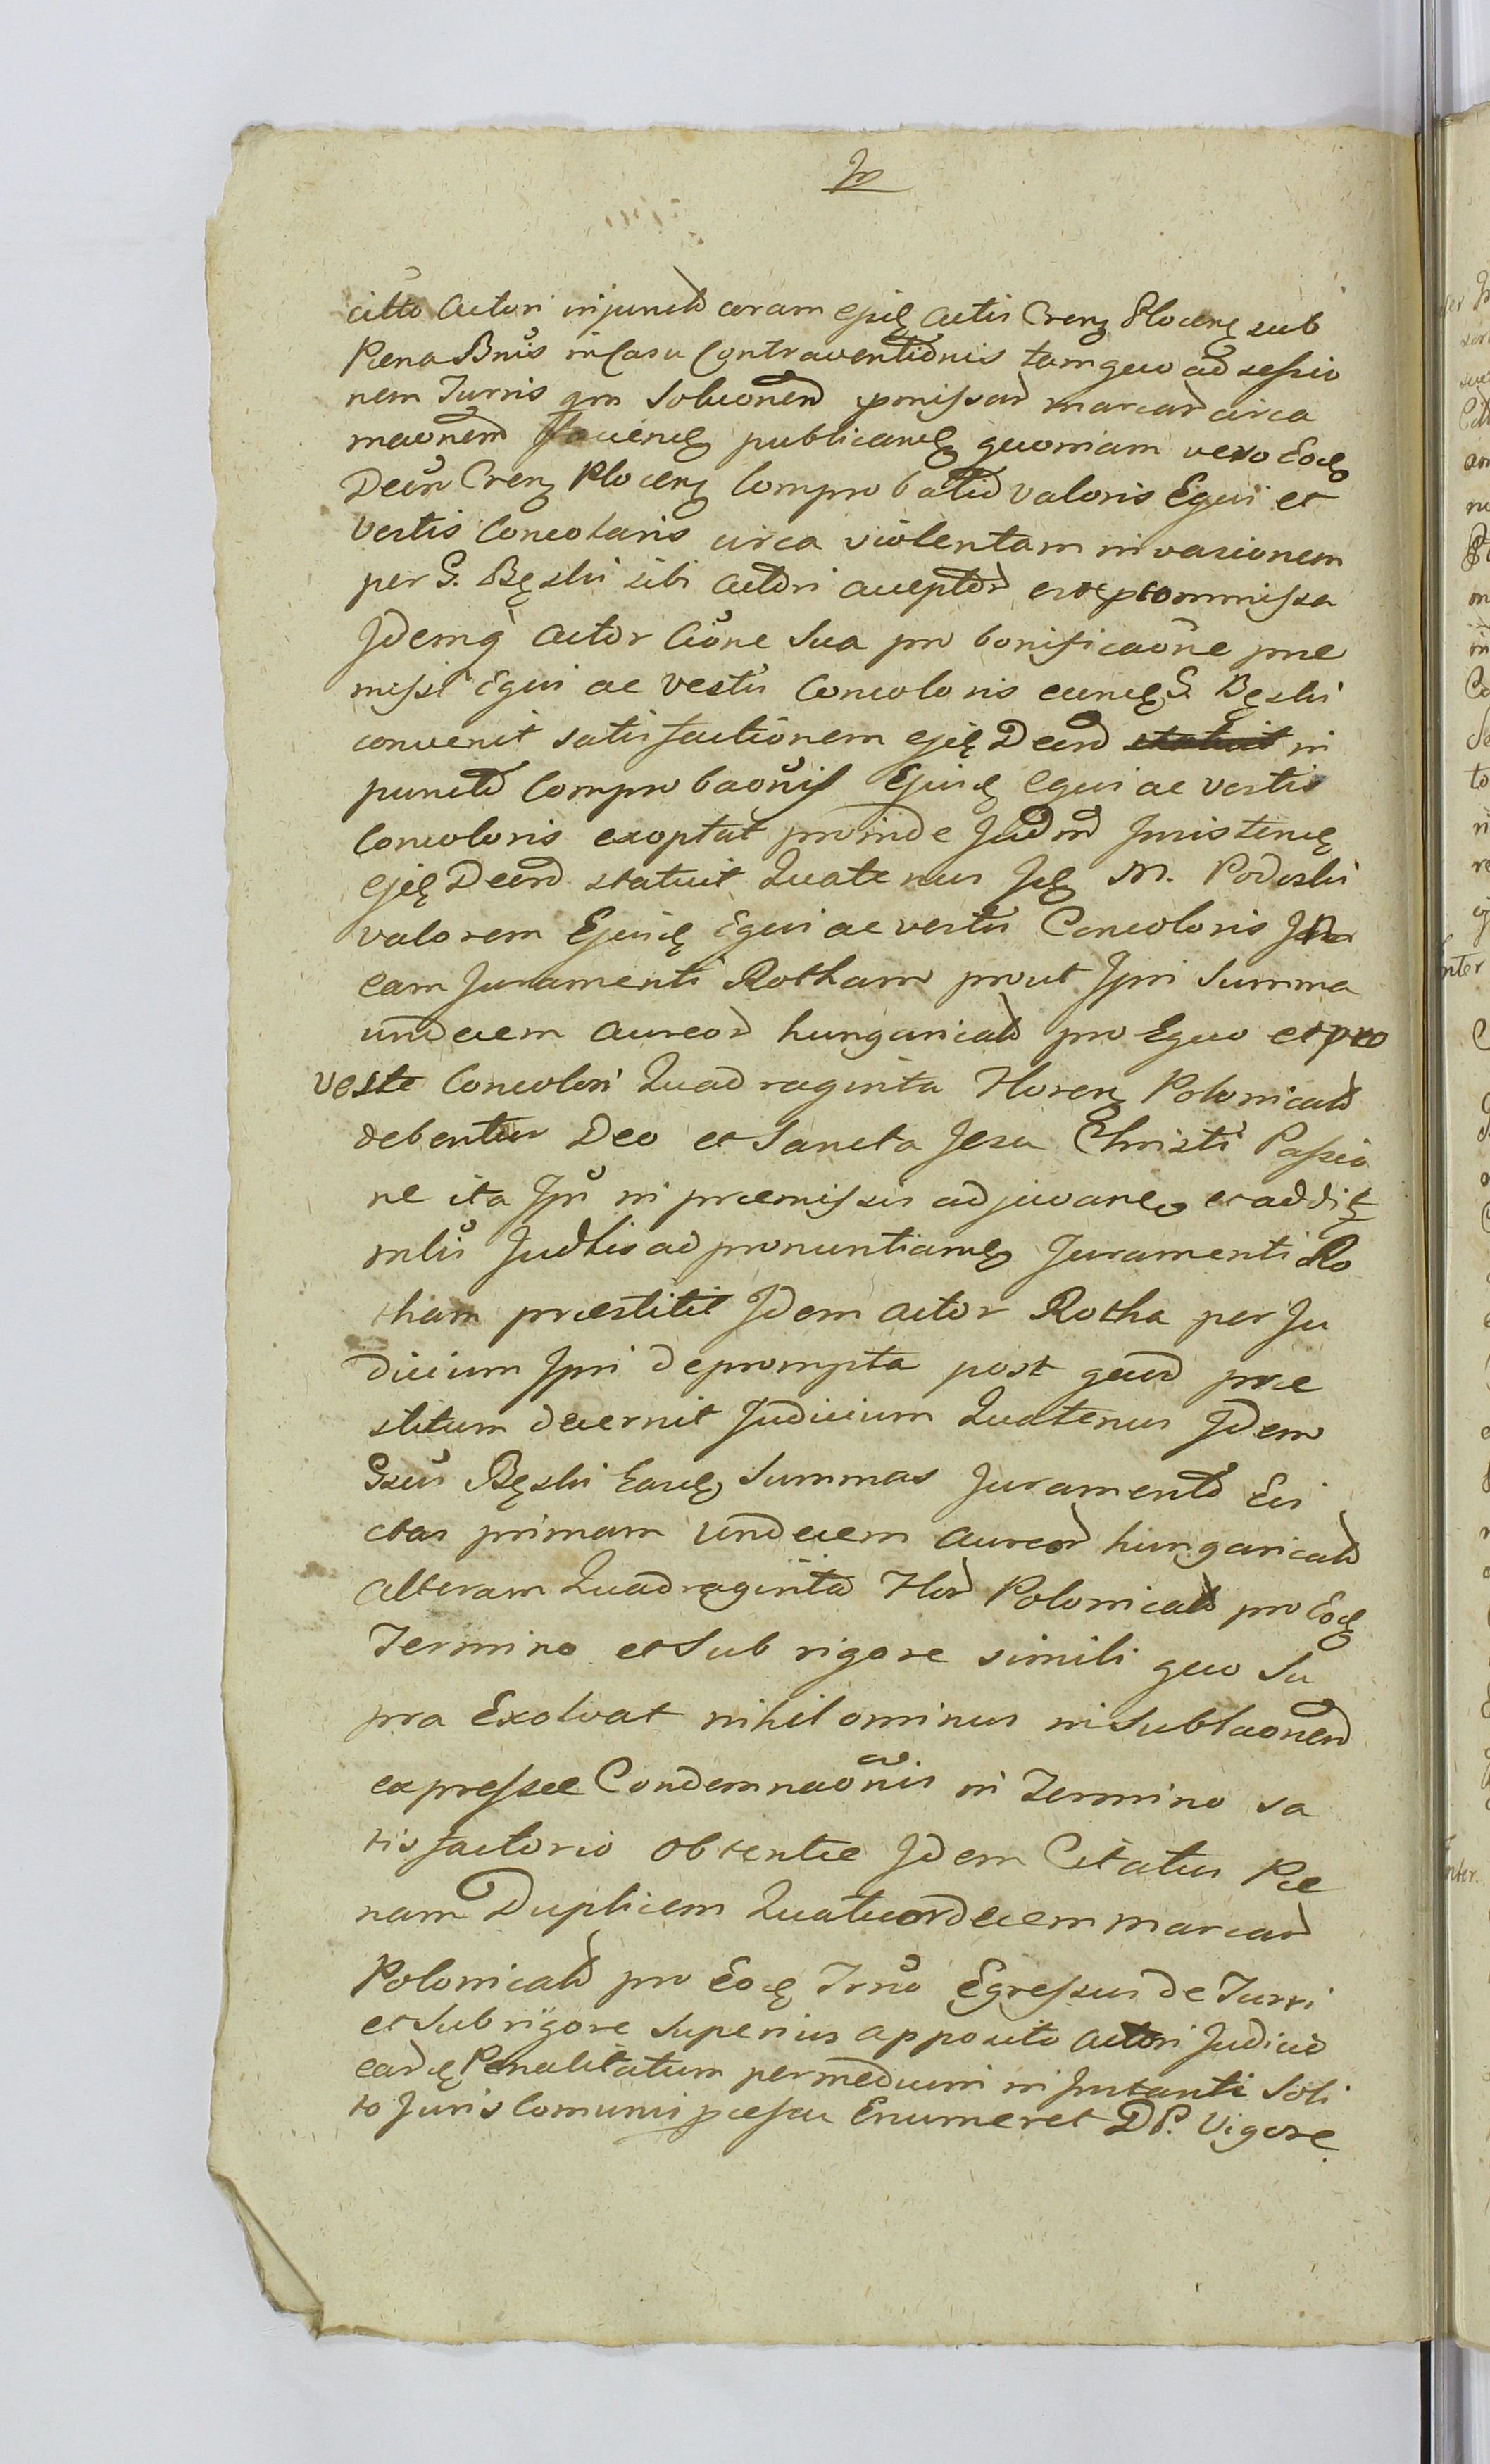 citto Actori injunctо coram ejsdę Actis Crenz Plocenz sub
Pena Bnis in Casu Contraventionis tam quo ad sessio
nem Turris qm Solucionem pmissar marcar circa
maonem faciendę publicandę quoniam vero Eodę
Decm Crenz Plocenz Comprobatio valoris Equi et
Vestis Concoloris circa violentam invasionem
per G. Bęski sibi Actori acceptor est commissa
Idemq Actor Cione Sua pro bonificaone prae
missi Equi ac Vestis Concoloris eundę G. Bęski
convenit satisfactionem ejdę Decro in
puncto Comprobaonis Ejusdę Equi ac Vestis
Concoloris exoptat proinde Judm Insistendę
ejdę Decro statuit Quatenus Idę M. Podoski
valorem Ejusdę Equi ac vestis Concoloris
eam Juramenti Rotham prout Ipri Summa
undecem Aureor hungarical pro Equo et pro
veste Concolori Quadraginta Floren Polonical
debentur Deo et Sancta Jesu Christi Passio
ne ita Ipm in praemissis adjuvare et addit
mlis Judlis ad pronuntiandę Juramenti Ro
tham praestitit Idem Actor Rotha per Ju
dicium Ipri deprompta post quod prae
stitum decernit Judicium Quatenus Idem
Gsus Bęski Easdę Summas Juramento Evi
ctas primam undecem Aureor hungarical
Alteram Quadraginta Flor Polonical pro Eodę
Termino et Sub rigore simili quo Su
pra Exolvat nihilominus in Sublaonem
expressae Condemnaonis in Termino sa
tisfactorio obtentae Idem Citatus Pae
nam Duplicem Quatuordecem marcar
Polonical pro Eodę Trno Egressus de Turri
et Sub rigore Superius apposito Actori Judicio
eardę Penalitatum per medium in Instanti Soli
to Juris Comunis pcessu Enumeret DP. Vigore